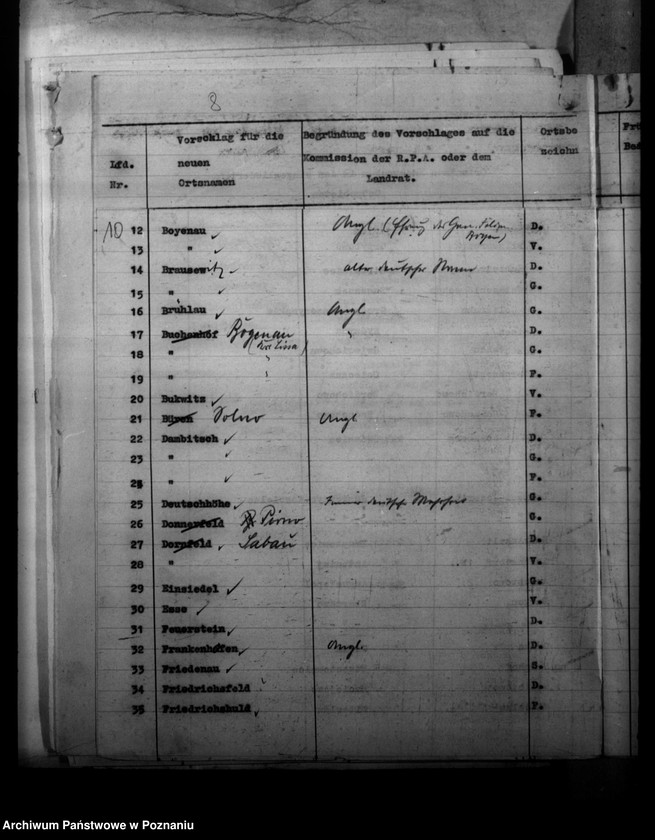 8
Lfd. Nr. Vorschlag für die neuen Ortsnamen Begründung des Vorschlages auf die Kommission der R.P.A. oder dem Landrat. Ortsbe zeichn
10 12 Boyenau Angl. D.
13 " V.
14 Brausewitz alter deutscher Name D.
15 " G.
16 Brühlau Angl G.
17 Buchenhof Bögenau (Krs Lissa) " D.
18 " " G.
19 " " P.
20 Bukwitz V.
21 Büren Solno Angl P.
22 Dambitsch D.
23 " G.
24 " P.
25 Deutschhöhe deutsche G.
26 Donnerfeld Pirno G.
27 Dornfeld Sabau D.
28 " V.
29 Einsiedel G.
30 Esse V.
31 Feuerstein D.
32 Frankenhofen Angl. D.
33 Friedenau S.
34 Friedrichsfeld D.
35 Friedrichshuld P.
Archiwum Państwowe w Poznaniu